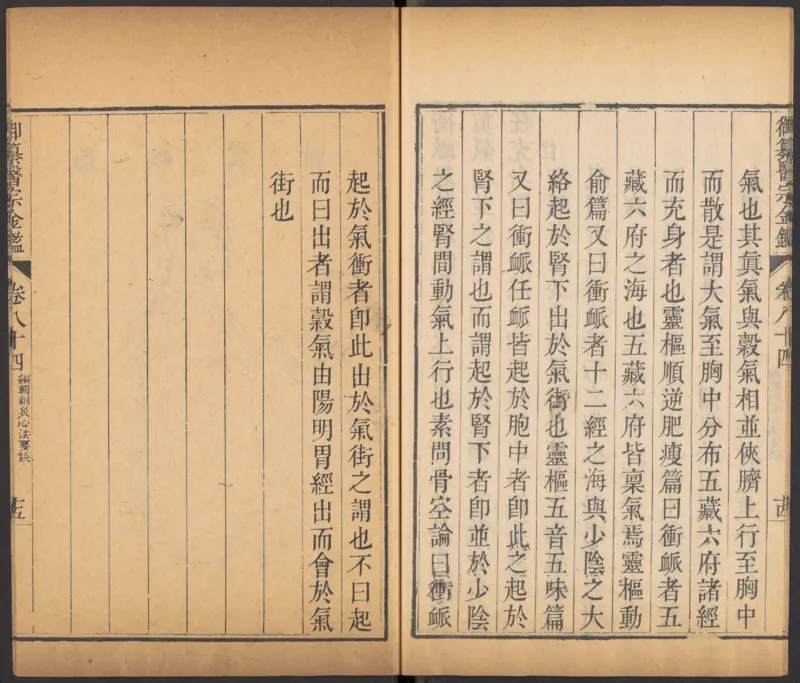 氣也其眞氣與穀氣相並俠臍上行至胸中
而散是謂大氣至胸中分布五藏六府諸經
而充身者也靈樞順逆肥瘦篇曰衝脈者五
藏六府之海也五藏六府皆稟氣焉靈樞動
俞篇又曰衝脈者十二經之海與少陰之大
絡起於腎下出於氣街也靈樞五音五味篇
又曰衝脈任脈皆起於胞中者卽此之起於
腎下之謂也而謂起於腎下者卽並於少陰
之經腎間動氣上行也素問骨空論曰衝脈
御纂醫宗金鑑
卷八十四
起於氣衝者卽此出於氣街之謂也不曰起
而曰出者謂穀氣由陽明胃經出而會於氣
街也
御纂醫宗金鑑
卷八十四
編輯刺灸心法要訣